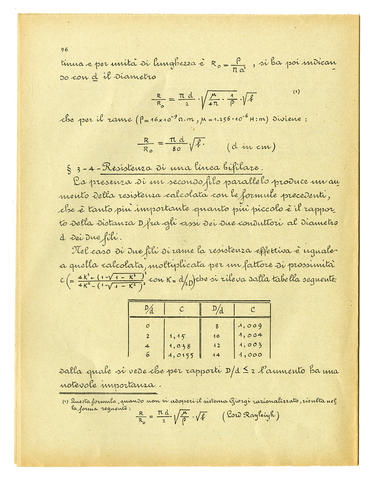 96
tinua e per unità di lunghezza è R₀ = ρ / π a² , si ha poi indican
do con d il diametro
R/R₀ = πd/2 · √(μ/4π · 1/ρ) · √f (1)
che per il rame (ρ=16×10⁻⁹ Ω.m, μ=1.256·10⁻⁶ H:m) diviene:
R/R₀ = πd/80 √f. (d in cm)
§ 3-4- Resistenza di una linea bifilare.
La presenza di un secondo filo parallelo produce un au
mento della resistenza calcolata con le formule precedenti,
che è tanto più importante quanto più piccolo è il rappor
to della distanza D fra gli assi dei due conduttori al diametro
d dei due fili.
Nel caso di due fili di rame la resistenza effettiva è iguale
a quella calcolata, moltiplicata per un fattore di prossimità
che si rileva dalla tabella seguente
D/d C D/d C
0 8 1,009
2 1,15 10 1,004
4 1,038 12 1,003
6 1,0155 14 1,000
dalla quale si vede che per rapporti D/d ≤ 2 l'aumento ha una
notevole importanza.
(1) Questa formula, quando non si adoperi il sistema Giorgi razionalizzato, risulta nel
la forma seguente:
R/R₀ = πd/2 √(μ/ρ) · √f (Lord Rayleigh)